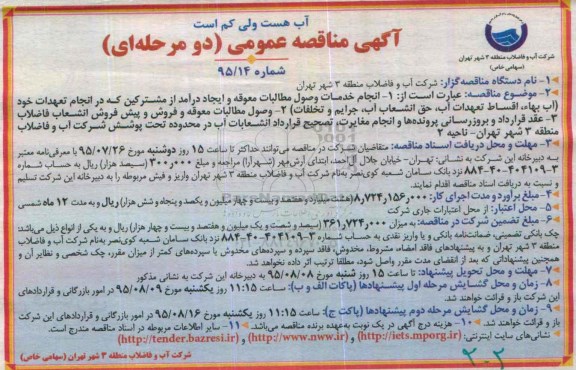 آب هست ولی کم است
آگهی مناقصه عمومی (دو مرحله‌ای)
شماره ۹۵/۱۴
شرکت آب و فاضلاب منطقه ۳ شهر تهران
(سهامی خاص)
۱- نام دستگاه مناقصه‌گزار: شرکت آب و فاضلاب منطقه ۳ شهر تهران
۲- موضوع مناقصه: عبارت است از: ۱- انجام خدمات وصول مطالبات معوقه و ایجاد درآمد از مشترکین که در انجام تعهدات خود
(آب بهاء، اقساط تعهدات آب، حق انشعاب آب، جرایم و تخلفات) ۲- وصول مطالبات معوقه و فروش و پیش فروش انشعاب فاضلاب
۳- عقد قرارداد و بروزرسانی پرونده‌ها و انجام مغایرت، تصحیح قرارداد انشعابات آب در محدوده تحت پوشش شرکت آب و فاضلاب
منطقه ۳ شهر تهران- ناحیه ۲
۳- مهلت و محل دریافت اسناد مناقصه: متقاضیان شرکت در مناقصه می‌توانند حداکثر تا ساعت ۱۵ روز دوشنبه مورخ ۹۵/۰۷/۲۶ با معرفی‌نامه معتبر
به دبیرخانه این شرکت به نشانی: تهران- خیابان جلال آل‌احمد، ابتدای آرش‌مهر (شهرآرا) مراجعه و مبلغ ۳۰۰٫۰۰۰ (سیصد هزار) ریال به حساب شماره
۸۸۴-۴۰-۴۰۴۱۰۹-۳ نزد بانک سامان شعبه کوی‌نصر به‌نام شرکت آب و فاضلاب منطقه ۳ شهر تهران واریز و فیش مربوطه را به دبیرخانه این شرکت تسلیم
و نسبت به دریافت اسناد مناقصه اقدام نمایند.
۴- مبلغ برآورد و مدت اجرای کار: ۸٫۷۲۴٫۱۵۶٫۰۰۰ (هشت میلیارد و هفتصد و بیست و چهار میلیون و یکصد و پنجاه و شش هزار) ریال و به مدت ۱۲ ماه شمسی
۵- محل اعتبار: از محل اعتبارات جاری شرکت
۶- مبلغ تضمین شرکت در مناقصه: به میزان ۳۶۱٫۷۲۴٫۰۰۰ (سیصد و شصت و یک میلیون و هفتصد و بیست و چهار هزار) ریال و به یکی از انواع ذیل می‌باشد:
چک بانکی تضمینی، ضمانت‌نامه بانکی و یا واریز نقدی به حساب شماره ۸۸۴-۴۰-۴۰۴۱۰۹-۲ نزد بانک سامان شعبه کوی‌نصر به‌نام شرکت آب و فاضلاب
منطقه ۳ شهر تهران و به پیشنهادهای فاقد امضاء، مشروط، مخدوش، فاقد سپرده و سپرده‌های مخدوش یا سپرده‌های کمتر از میزان مقرر، چک شخصی و نظایر آن و
همچنین پیشنهاداتی که بعد از انقضای مدت مقرر واصل شود، مطلقاً ترتیب اثر داده نخواهد شد.
۷- مهلت و محل تحویل پیشنهاد: تا ساعت ۱۵ روز شنبه مورخ ۹۵/۰۸/۰۸ به دبیرخانه این شرکت به نشانی مذکور
۸- زمان و محل گشایش مرحله اول پیشنهادها (پاکات الف و ب): ساعت ۱۱:۱۵ روز یکشنبه مورخ ۹۵/۰۸/۰۹ در امور بازرگانی و قراردادهای
این شرکت باز و قرائت خواهند شد.
۹- زمان و محل گشایش مرحله دوم پیشنهادها (پاکت ج): ساعت ۱۱:۱۵ روز یکشنبه مورخ ۹۵/۰۸/۱۶ در امور بازرگانی و قراردادهای این شرکت
باز و قرائت خواهند شد. ۱۰- هزینه درج آگهی در یک نوبت به‌عهده برنده مناقصه می‌باشد. ۱۱- سایر اطلاعات مربوطه در اسناد مناقصه مندرج است.
نشانی‌های سایت اینترنتی: (http://iets.mporg.ir) و (http://www.nww.ir) و (http://tender.bazresi.ir)
شرکت آب و فاضلاب منطقه ۳ شهر تهران (سهامی خاص)
۲۰۲